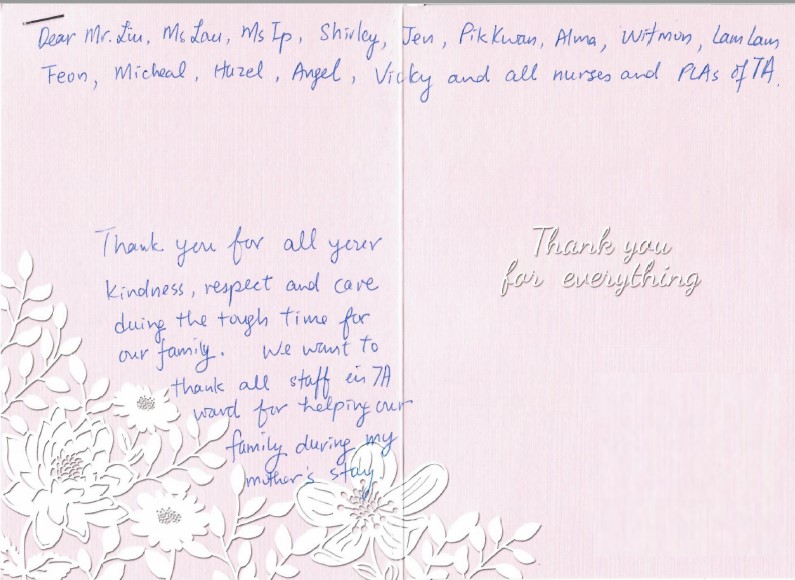 Dear Mr. Liu, Ms Lau, Ms Ip, Shirley, Jen, Pik Kwan, Alma, Witmun, Lam Lam
Feon, Micheal, Hazel, Angel, Vicky and all nurses and PCAs of 7A.
Thank you for all your
kindness, respect and care
duing the tough time for
our family. We want to
thank all staff in 7A
ward for helping our
family during my
mother's stay.
Thank you
for everything